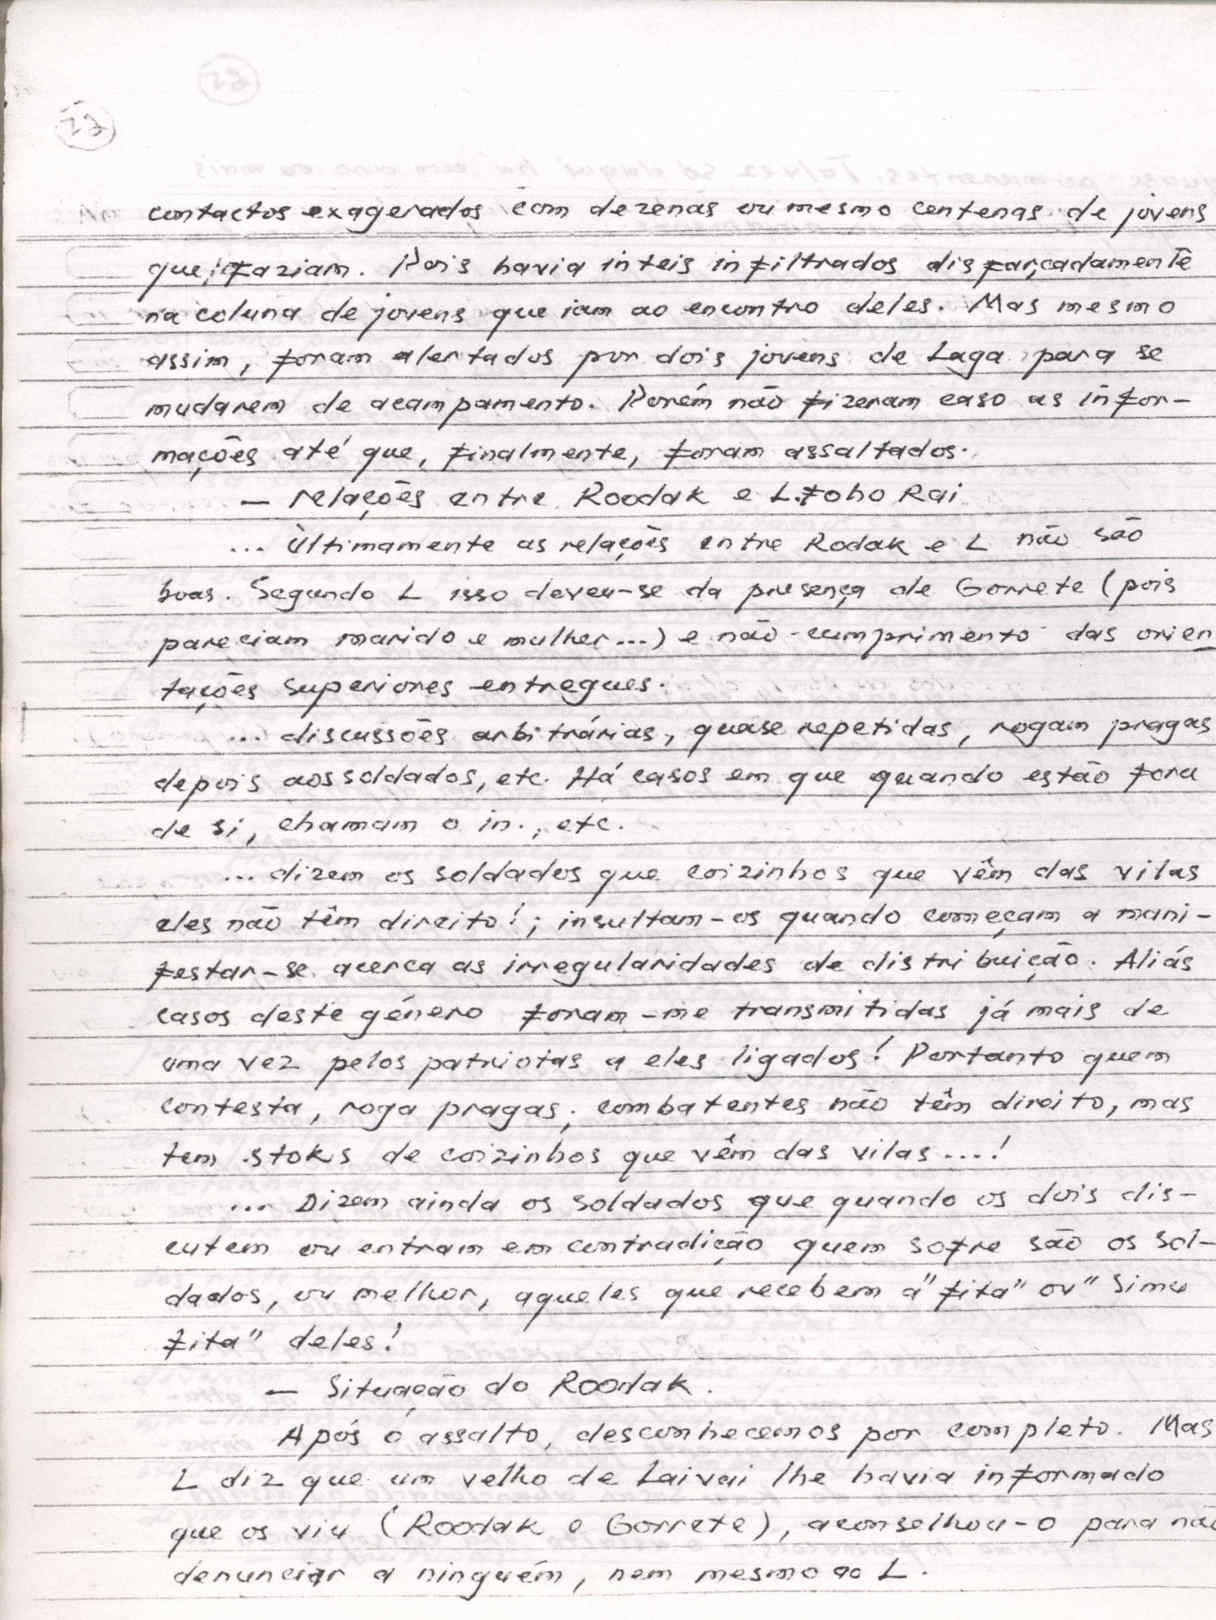 27
contactos exagerados com dezenas ou mesmo centenas de jovens
que faziam. Pois havia inteis infiltrados disfarçadamente
na coluna de jovens que iam ao encontro deles. Mas mesmo
assim, foram alertados por dois jovens de Laga para se
mudarem de acampamento. Porém não fizeram caso as infor-
mações até que, finalmente, foram assaltados.
— relações entre Roodak e L.Foho Rai
... Ùltimamente as relações entre Rodak e L não são
boas. Segundo L isso deveu-se da presença de Gorrete (pois
pareciam marido e mulher...) e não-cumprimento das orien
tações superiores entregues.
... discussões arbitrárias, quase repetidas, rogam pragas
depois aos soldados, etc. Há casos em que quando estão fora
de si, chamam o in., etc.
... dizem os soldados que coizinhos que vêm das vilas
eles não têm direito!; insultam-os quando começam a mani-
festar-se acerca as irregularidades de distribuição. Aliás
casos deste género foram-me transmitidas já mais de
uma vez pelos patriotas a eles ligados! Portanto quem
contesta, roga pragas; combatentes não têm direito, mas
tem stoks de coizinhos que vêm das vilas...!
... Dizem ainda os soldados que quando os dois dis-
cutem ou entram em contradição quem sofre são os sol-
dados, ou melhor, aqueles que recebem a "fita" ou "simu
fita" deles!
— Situação do Roodak.
Após o assalto, desconhecemos por completo. Mas
L diz que um velho de Laivai lhe havia informado
que os viu (Roodak e Gorrete), aconselhou-o para não
denunciar a ninguém, nem mesmo ao L.